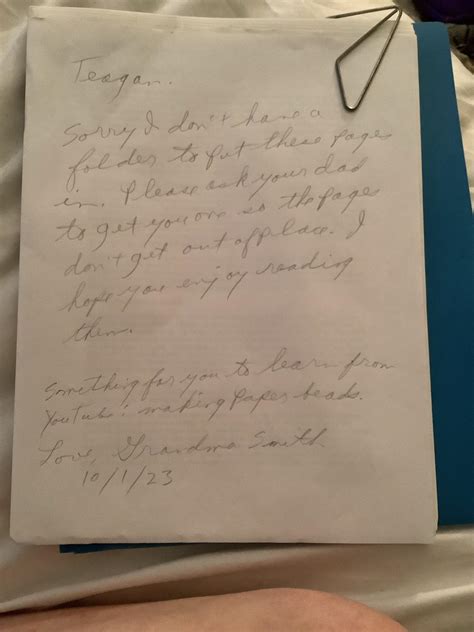 Teagan.
Sorry I don't have a
folder to put these pages
in. Please ask your dad
to get you one so the pages
don't get out of place. I
hope you enjoy reading
them.
Something for you to learn from
YouTube: making paper beads.
Love, Grandma Smith
10/1/23